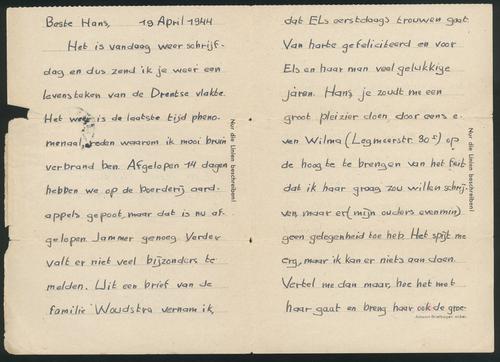 Beste Hans, 19 April 1944
Het is vandaag weer schrijf-
dag en dus zend ik je weer een
levensteken van de Drentse vlakte.
Het weer is de laatste tijd pheno-
menaal, reden waarom ik mooi bruin
verbrand ben. Afgelopen 14 dagen
hebben we op de boerderij aard-
appels gepoot, maar dat is nu af-
gelopen. Jammer genoeg. Verder
valt er niet veel bijzonders te
melden. Uit een brief van de
familie Woudstra vernam ik,
Nur die Linien beschreiben!
dat Els eerstdaags trouwen gaat.
Van harte gefeliciteerd en voor
Els en haar man veel gelukkige
jaren. Hans, je zoudt me een
groot pleizier doen, door eens e-
ven Wilma (Legmeerstr. 30 ) op
de hoogte te brengen van het feit
dat ik haar graag zou willen schrij-
ven maar er (mijn ouders evenmin)
geen gelegenheid toe heb. Het spijt me
erg, maar ik kan er niets aan doen.
Vertel me dan maar, hoe het met
haar gaat en breng haar ook de groe-
Nur die Linien beschreiben!